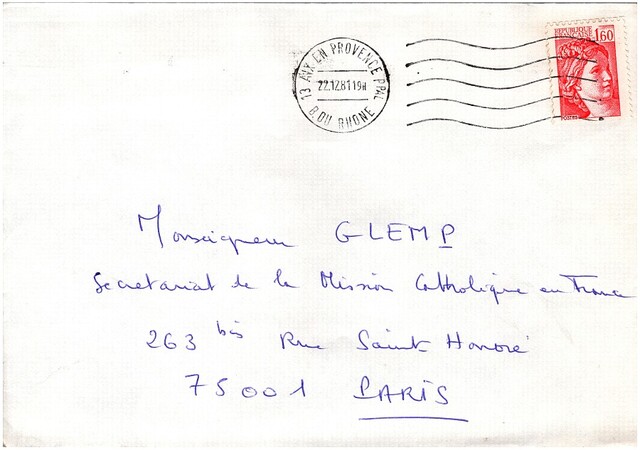 13 AIX EN PROVENCE PPAL
22.12.81 19H
B. DU RHONE
REPUBLIQUE
1,60
POSTES
Monseigneur GLEMP
Secretariat de la Mission Catholique en France
263 bis Rue Saint Honoré
75001 PARIS